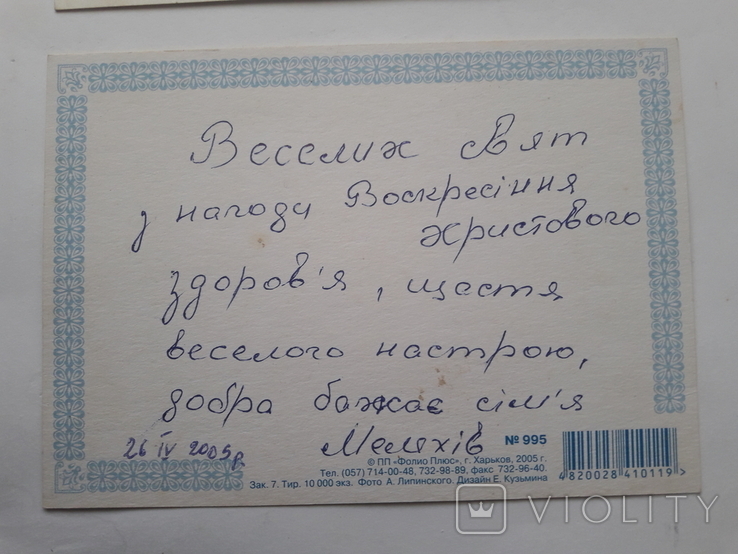 Веселих свят
з нагоди Воскресіння
Христового
здоров'я, щастя
веселого настрою,
добра бажає сім'я
Мелехів
26 IV 2005р.
№ 995
© ПП «Фолио Плюс», г. Харьков, 2005 г.
Тел. (057) 714-00-48, 732-98-89, факс 732-96-40.
Зак. 7. Тир. 10 000 экз. Фото А. Липинского. Дизайн Е. Кузьмина
4 820028 410119 >
VIOLITY